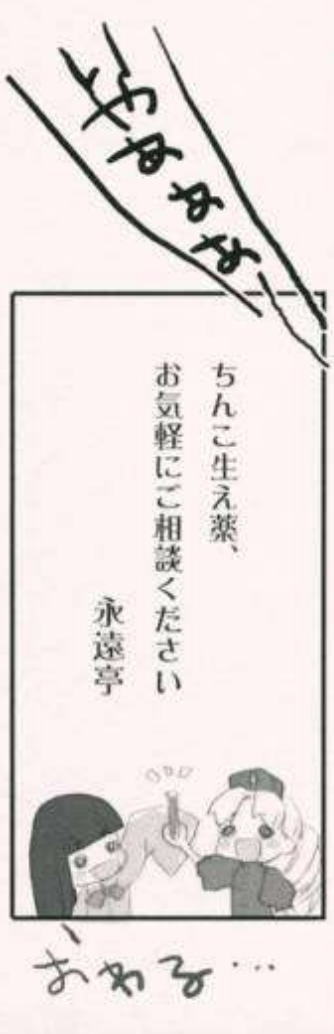 ちんこ生え薬、
お気軽にご相談ください
永遠亭
おわる…